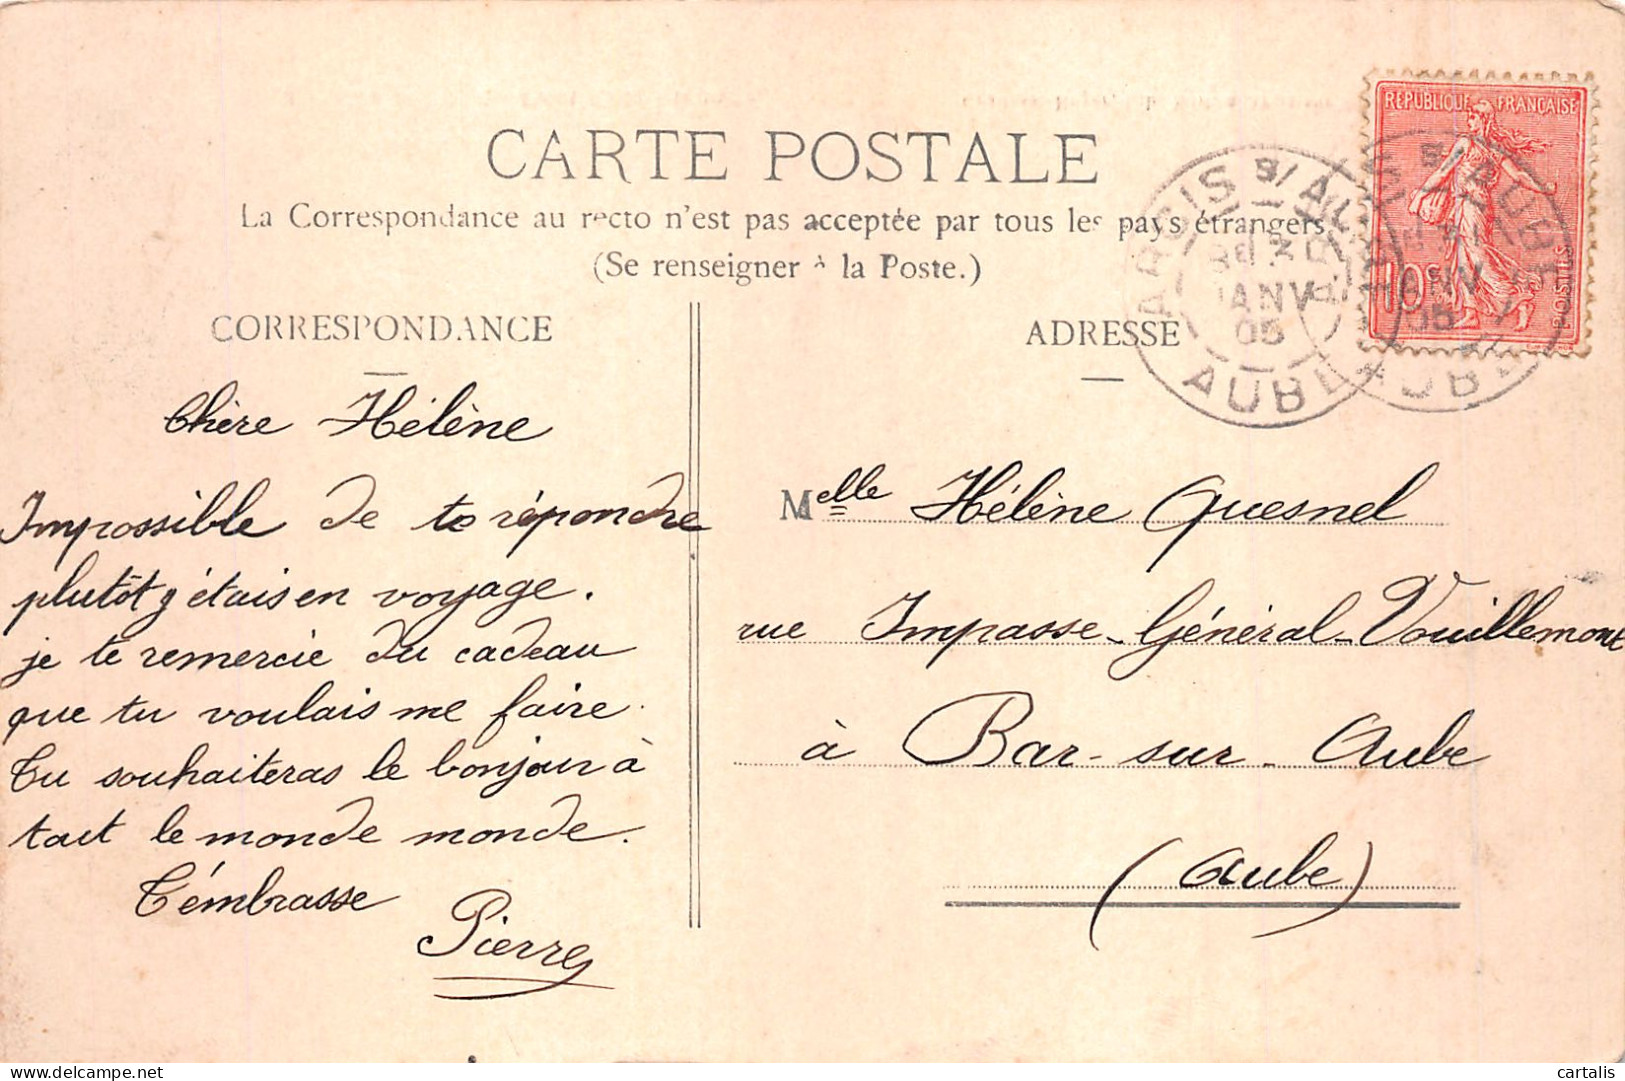 CARTE POSTALE
La Correspondance au recto n'est pas acceptée par tous les pays étrangers
(Se renseigner à la Poste.)
REPUBLIQUE FRANÇAISE
10c
POSTES
ARCIS S/ AUBE
JANV
05
AUBE
ARCIS S/ AUBE
JANV
05
AUBE
CORRESPONDANCE
Chère Hélène
Impossible de te répondre
plutôt j'étais en voyage.
je te remercie du cadeau
que tu voulais me faire.
Tu souhaiteras le bonjour à
tout le monde monde.
T'émbrasse
Pierre
ADRESSE
Melle Hélène Quesnel
rue Impasse-Général-Vouillemont
à Bar-sur-Aube
(Aube)
delcampe.net
cartalis